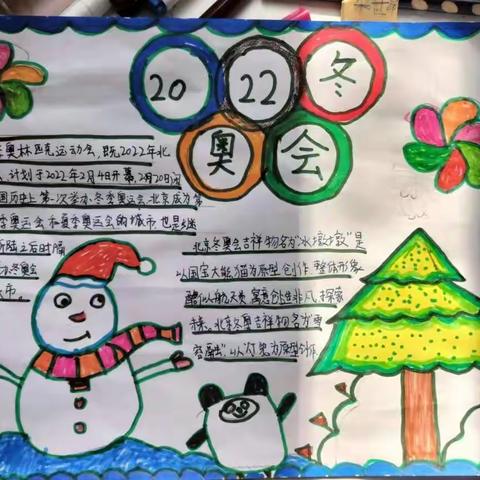 20
22
冬
奥
会
奥林匹克运动会,既2022年北
计划于2022年2月4日开幕,2月20日闭
国历史上第一次举办冬季奥运会,北京成为第
季奥运会和夏季奥运会的城市 也是继
之后时隔
办冬奥会
市。
北京冬奥会吉祥物名为“冰墩墩”是
以国宝大熊猫为原型创作,整体形象
酷似航天员 寓意创造非凡、探索
未来、北京冬奥吉祥物名为雪
容融”,以灯笼为原型创作